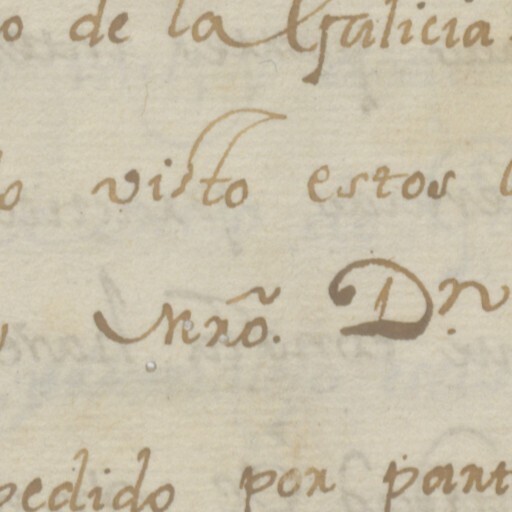 o de la Galicia
do visto estos
Mrõ. D.n
pedido por part